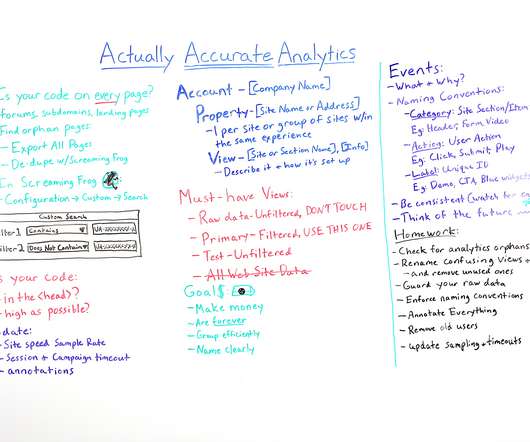 Actually Accurate Analytics
Is your code on every page?
forums, subdomains, landing pages
Find orphan pages:
- Export All Pages
- De-dupe w/Screaming Frog
In Screaming Frog
- Configuration → Custom → Search
Custom Search
Filter 1 Contains UA-XXXXXXX-X
Filter 2 Does Not Contain UA-XXXXXXX-X
Is your code:
- in the <head>?
- high as possible?
Update:
- Site speed Sample Rate
- Session + Campaign timeout
- annotations
Account - [Company Name]
Property - [Site Name or Address]
- 1 per site or group of sites w/in
the same experience
View - [Site or Section Name], [Info]
- Describe it + how it's set up
Must-have Views:
- Raw data - Unfiltered, DON'T TOUCH
- Primary - Filtered, USE THIS ONE
- Test - Unfiltered
- All Web Site Data
Goals:
- Make money
- Are forever
- Group efficiently
- Name clearly
Events:
- What + Why?
- Naming Conventions:
- Category: Site Section/Item
Eg: Header, Form Video
- Action: User Action
Eg: Click, Submit, Play
- Label: Unique ID
Eg: Demo, CTA, Blue widgets
- Be consistent (watch for
- Think of the future
Homework:
- Check for analytics orphans
- Rename confusing Views +
- and remove unused ones
- Guard your raw data
- Enforce naming conventions
- Annotate Everything
- Remove old users
- update sampling + timeouts